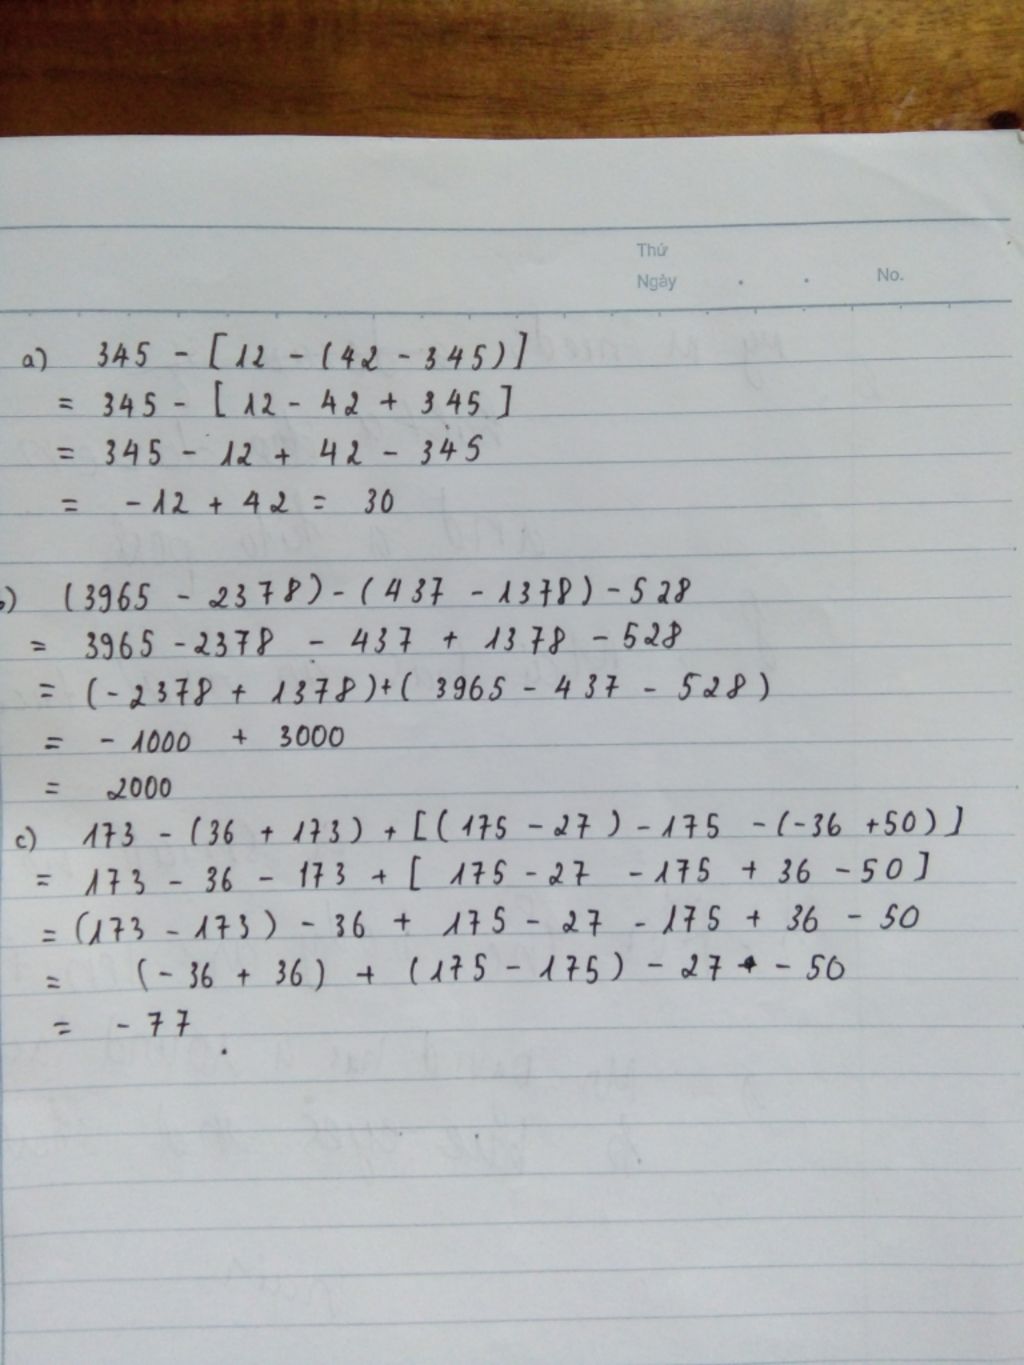 Thứ
Ngày . . No.
a) 345 - [12 - (42 - 345)]
= 345 - [12 - 42 + 345]
= 345 - 12 + 42 - 345
= -12 + 42 = 30
b) (3965 - 2378) - (437 - 1378) - 528
= 3965 - 2378 - 437 + 1378 - 528
= (-2378 + 1378) + (3965 - 437 - 528)
= - 1000 + 3000
= 2000
c) 173 - (36 + 173) + [(175 - 27) - 175 - (-36 + 50)]
= 173 - 36 - 173 + [175 - 27 - 175 + 36 - 50]
= (173 - 173) - 36 + 175 - 27 - 175 + 36 - 50
= (-36 + 36) + (175 - 175) - 27 - 50
= -77.